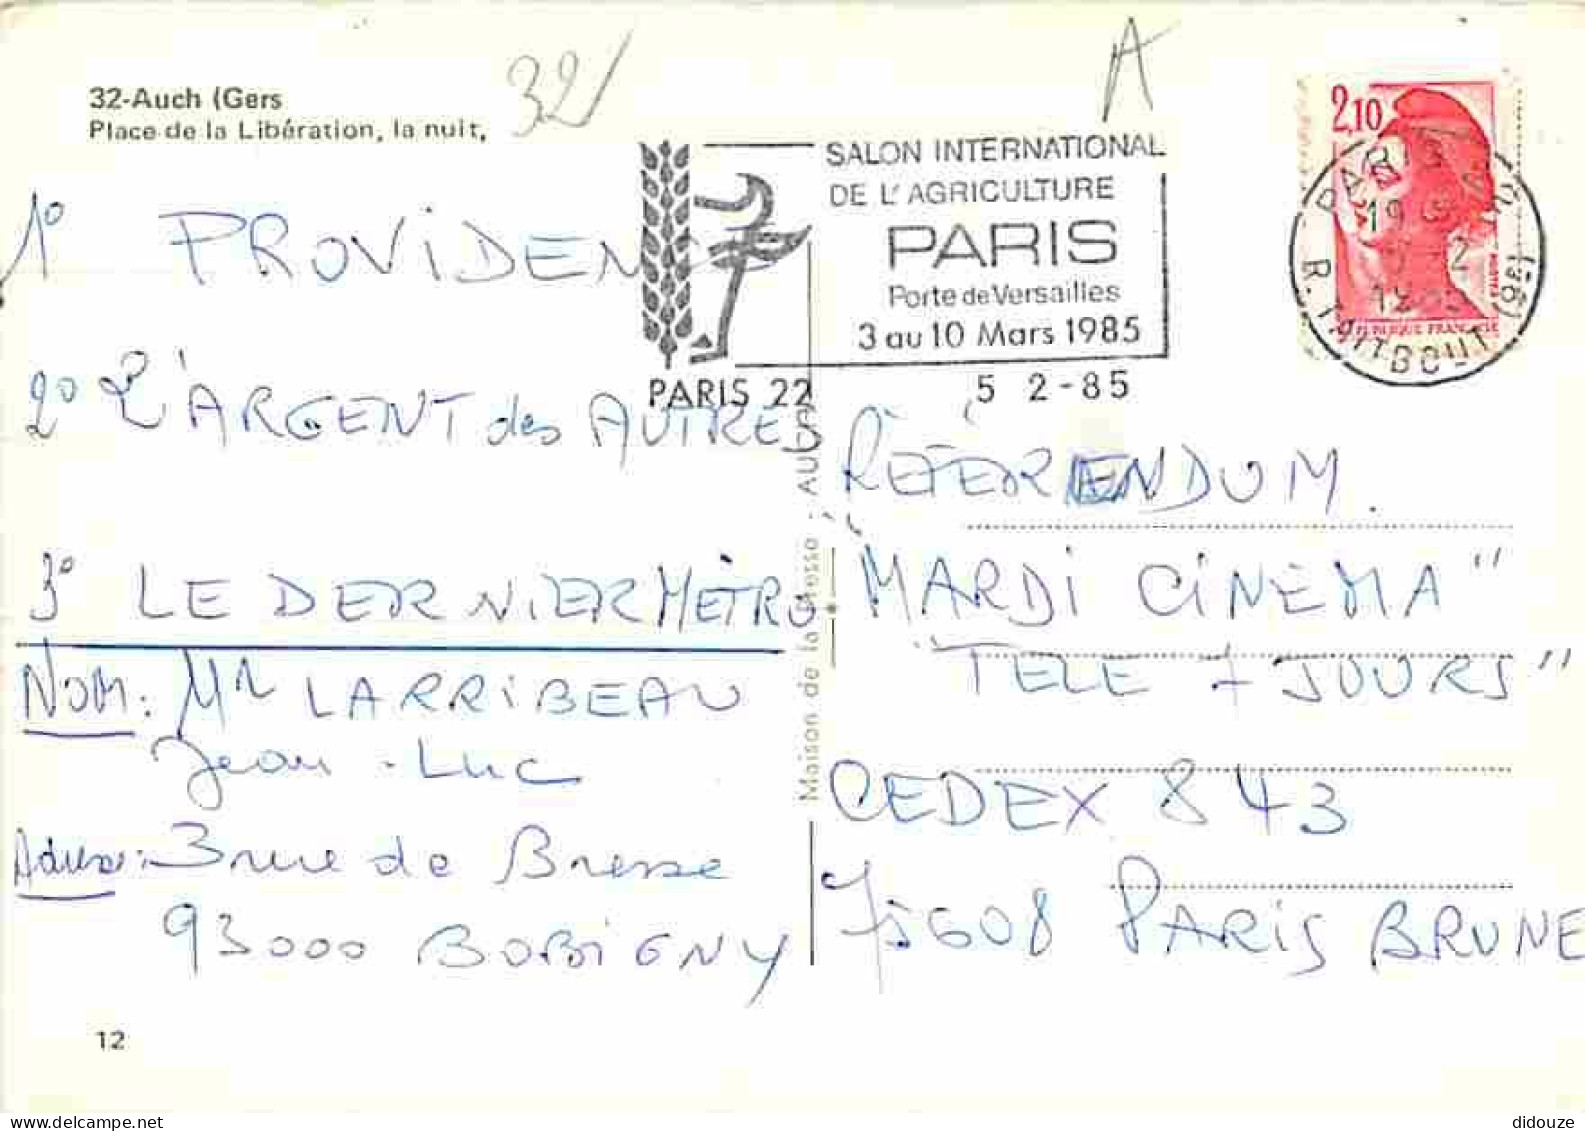 32-Auch (Gers
Place de la Libération, la nuit,
32
A
SALON INTERNATIONAL
DE L'AGRICULTURE
PARIS
Porte de Versailles
3 au 10 Mars 1985
PARIS 22
5 2-85
2,10
REPUBLIQUE FRANÇAISE
PARIS
R. TAITBOUT (9E)
1° PROVIDEN
2° L'ARGENT des AUTRES
3° LE DERNIER MÉTRO
NOM: Mr LARRIBEAU
Jean-Luc
Adresse: 3 rue de Bresse
93000 BOBIGNY
Maison de la Presse - AU
RÉFÉRENDUM.
"MARDI CINEMA"
"TELE 7 JOURS"
CEDEX 843
75608 PARIS BRUNE
12
didouze